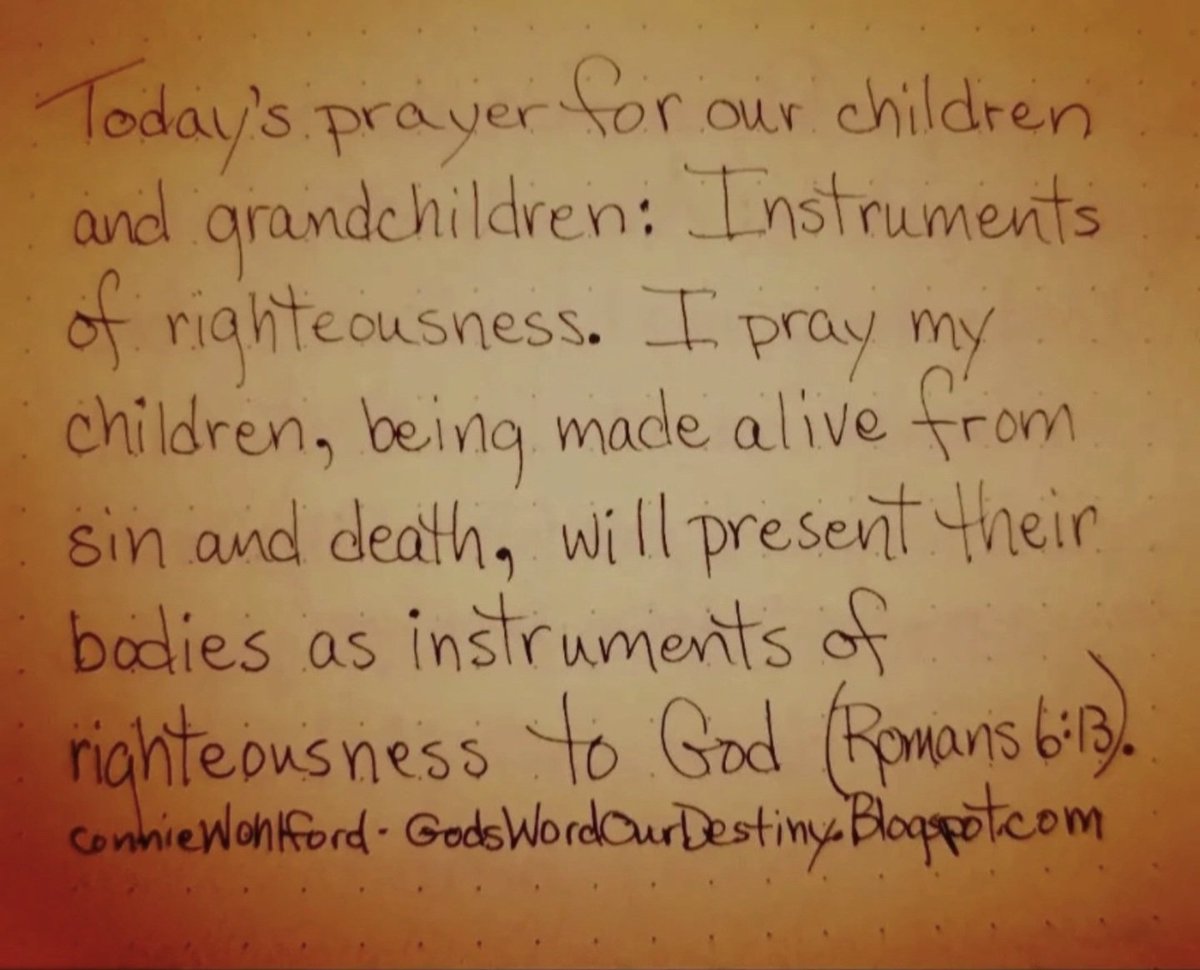 Today's prayer for our children
and grandchildren: Instruments
of righteousness. I pray my
children, being made alive from
sin and death, will present their
bodies as instruments of
righteousness to God (Romans 6:13).
ConnieWohlford - GodsWordOurDestiny.Blogspot.com